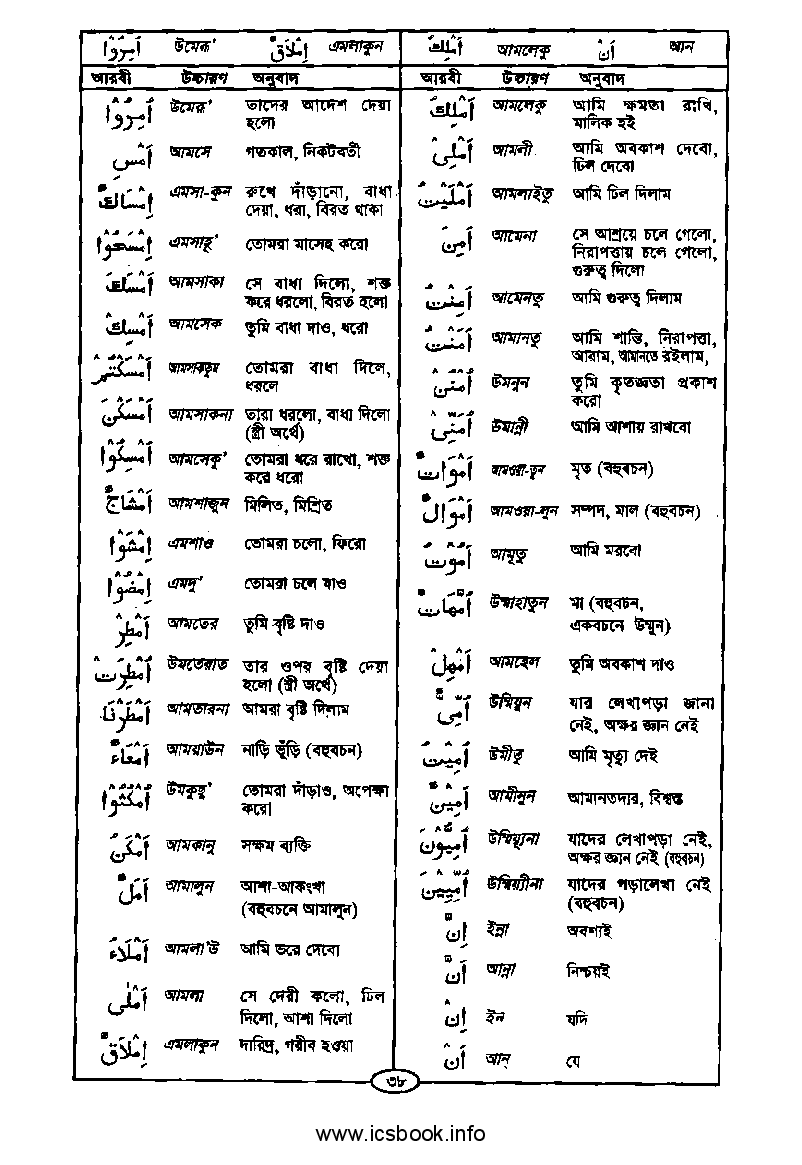 اُمِرُوْا উমেরু' اِمْلَاقٌ এমলাকুন
আরবী উচ্চারণ অনুবাদ
اُمِرُوْا উমেরু' তাদের আদেশ দেয়া
হলো
اَمْسِ আমসে গতকাল, নিকটবর্তী
اِمْسَاكٌ এমসা-কুন রুখে দাঁড়ানো, বাধা
দেয়া, ধরা, বিরত থাকা
اِمْسَحُوْا এমসাহূ' তোমরা মাসেহ করো
اَمْسَكَ আমসাকা সে বাধা দিলো, শক্ত
করে ধরলো, বিরত হলো
اَمْسِكْ আমসেক তুমি বাধা দাও, ধরো
اَمْسَكْتُمْ আমসাকতুম তোমরা বাধা দিলে,
ধরলে
اَمْسَكْنَ আমসাকনা তারা ধরলো, বাধা দিলো
(স্ত্রী অর্থে)
اَمْسِكُوْا আমসেকু' তোমরা ধরে রাখো, শক্ত
করে ধরো
اَمْشَاجٌ আমশাজুন মিলিত, মিশ্রিত
اِمْشُوْا এমশাও তোমরা চলো, ফিরো
اِمْضُوْا এমদু' তোমরা চলে যাও
اَمْطِرْ আমতের তুমি বৃষ্টি দাও
اُمْطِرَتْ উমতেরাত তার ওপর বৃষ্টি দেয়া
হলো (স্ত্রী অর্থে)
اَمْطَرْنَا আমতারনা আমরা বৃষ্টি দিলাম
اَمْعَاءٌ আময়াউন নাড়ি ভুঁড়ি (বহুবচন)
اُمْكُثُوْا উমকুছু' তোমরা দাঁড়াও, অপেক্ষা
করো
اَمْكَنُ আমকানু সক্ষম ব্যক্তি
اَمَلٌ আমালুন আশা-আকংখা
(বহুবচনে আমালুন)
اَمْلَاءُ আমলা'উ আমি ভরে দেবো
اَمْلٰى আমলা সে দেরী কলো, ঢিল
দিলো, আশা দিলো
اِمْلَاقٌ এমলাকুন দারিদ্র, গরীব হওয়া
اَمْلِكُ আমলেকু اَنْ আন
আরবী উচ্চারণ অনুবাদ
اَمْلِكُ আমলেকু আমি ক্ষমতা রাখি,
মালিক হই
اُمْلِىْ আমলী আমি অবকাশ দেবো,
ঢিল দেবো
اَمْلَيْتُ আমলাইতু আমি ঢিল দিলাম
اَمِنَ আমেনা সে আশ্রয়ে চলে গেলো,
নিরাপত্তায় চলে গেলো,
গুরুত্ব দিলো
اَمِنْتُ আমেনতু আমি গুরুত্ব দিলাম
اَمَنْتُ আমানতু আমি শান্তি, নিরাপত্তা,
আরাম, আমানতে রইলাম,
উমনুন তুমি কৃতজ্ঞতা প্রকাশ
করো
اُمَنِّىْ উমান্নী আমি আশায় রাখবো
اَمْوَاتٌ আমওয়া-তুন মৃত (বহুবচন)
اَمْوَالٌ আমওয়া-লুন সম্পদ, মাল (বহুবচন)
اَمُوْتُ আমূতু আমি মরবো
اُمَّهَاتٌ উম্মাহাতুন মা (বহুবচন,
একবচনে উম্মুন)
اَمْهِلْ আমহেল তুমি অবকাশ দাও
اُمِّىٌّ উম্মিয়ুন যার লেখাপড়া জানা
নেই, অক্ষর জ্ঞান নেই
اُمِيْتُ উমীতু আমি মৃত্যু দেই
اَمِيْنٌ আমীনুন আমানতদার, বিশ্বস্ত
اُمِّيُّوْنَ উম্মিয়্যুনা যাদের লেখাপড়া নেই,
অক্ষর জ্ঞান নেই (বহুবচন)
اُمِّيِّيْنَ উম্মিয়্যীনা যাদের পড়ালেখা নেই
(বহুবচন)
اِنَّ ইন্না অবশ্যই
اَنَّ আন্না নিশ্চয়ই
اِنْ ইন যদি
اَنْ আন্ যে
৩৮
www.icsbook.info